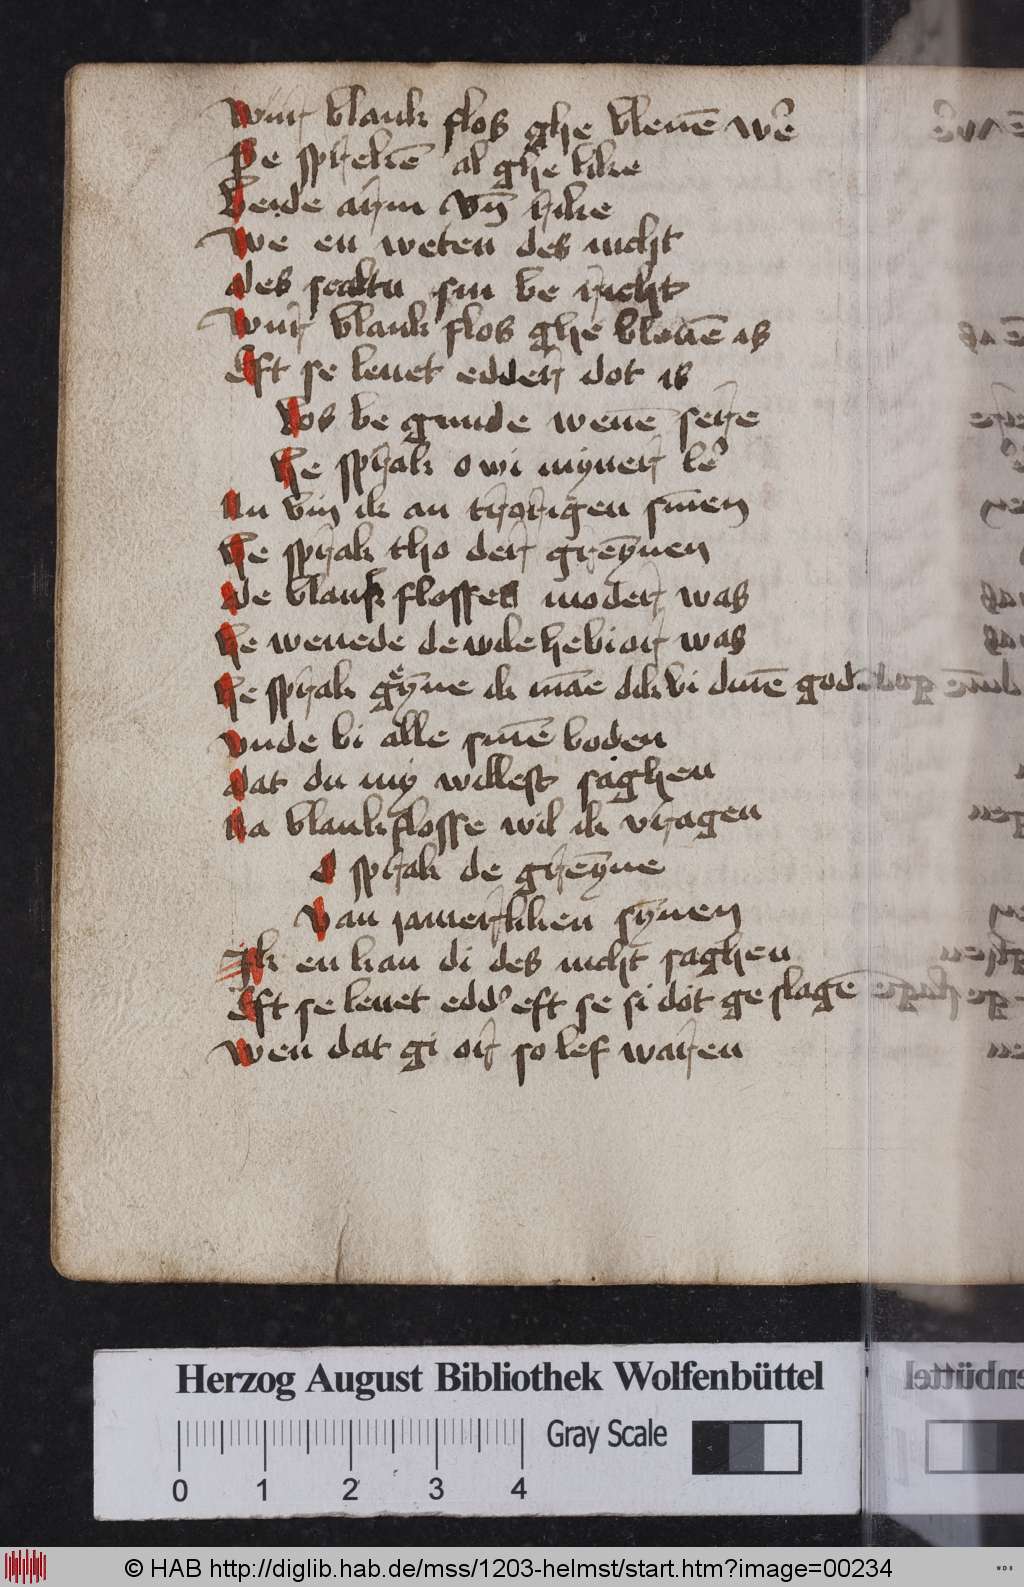 wur blank flos ghe bleuē wē
Se sprekē al ghe like
beide arm vn̄ rike
we en weten des nicht
des scaltu sin be richt
wur blank flos ghe bleuē is
Eft se leuet edder dot is
flos be gunde wenē sere
he sprak owi myner lē
In vin ik an trorigen sīnen
he sprak tho der greȳnen
de blank flosses moder was
he wenede
he sprak greȳne ik māe dik bi dinē gode
vnde bi alle sinē boden
dat du my willest saghen
Na blankflosse wil ik vragen
O sprak de greȳne
van iamerliken sȳnen
Ik en kan di des nicht saghen
Eft se leuet edd' eft se si dot ge slagē
wen dat gi or so lef waren
Herzog August Bibliothek Wolfenbüttel
Gray Scale
0 1 2 3 4
© HAB http://diglib.hab.de/mss/1203-helmst/start.htm?image=00234